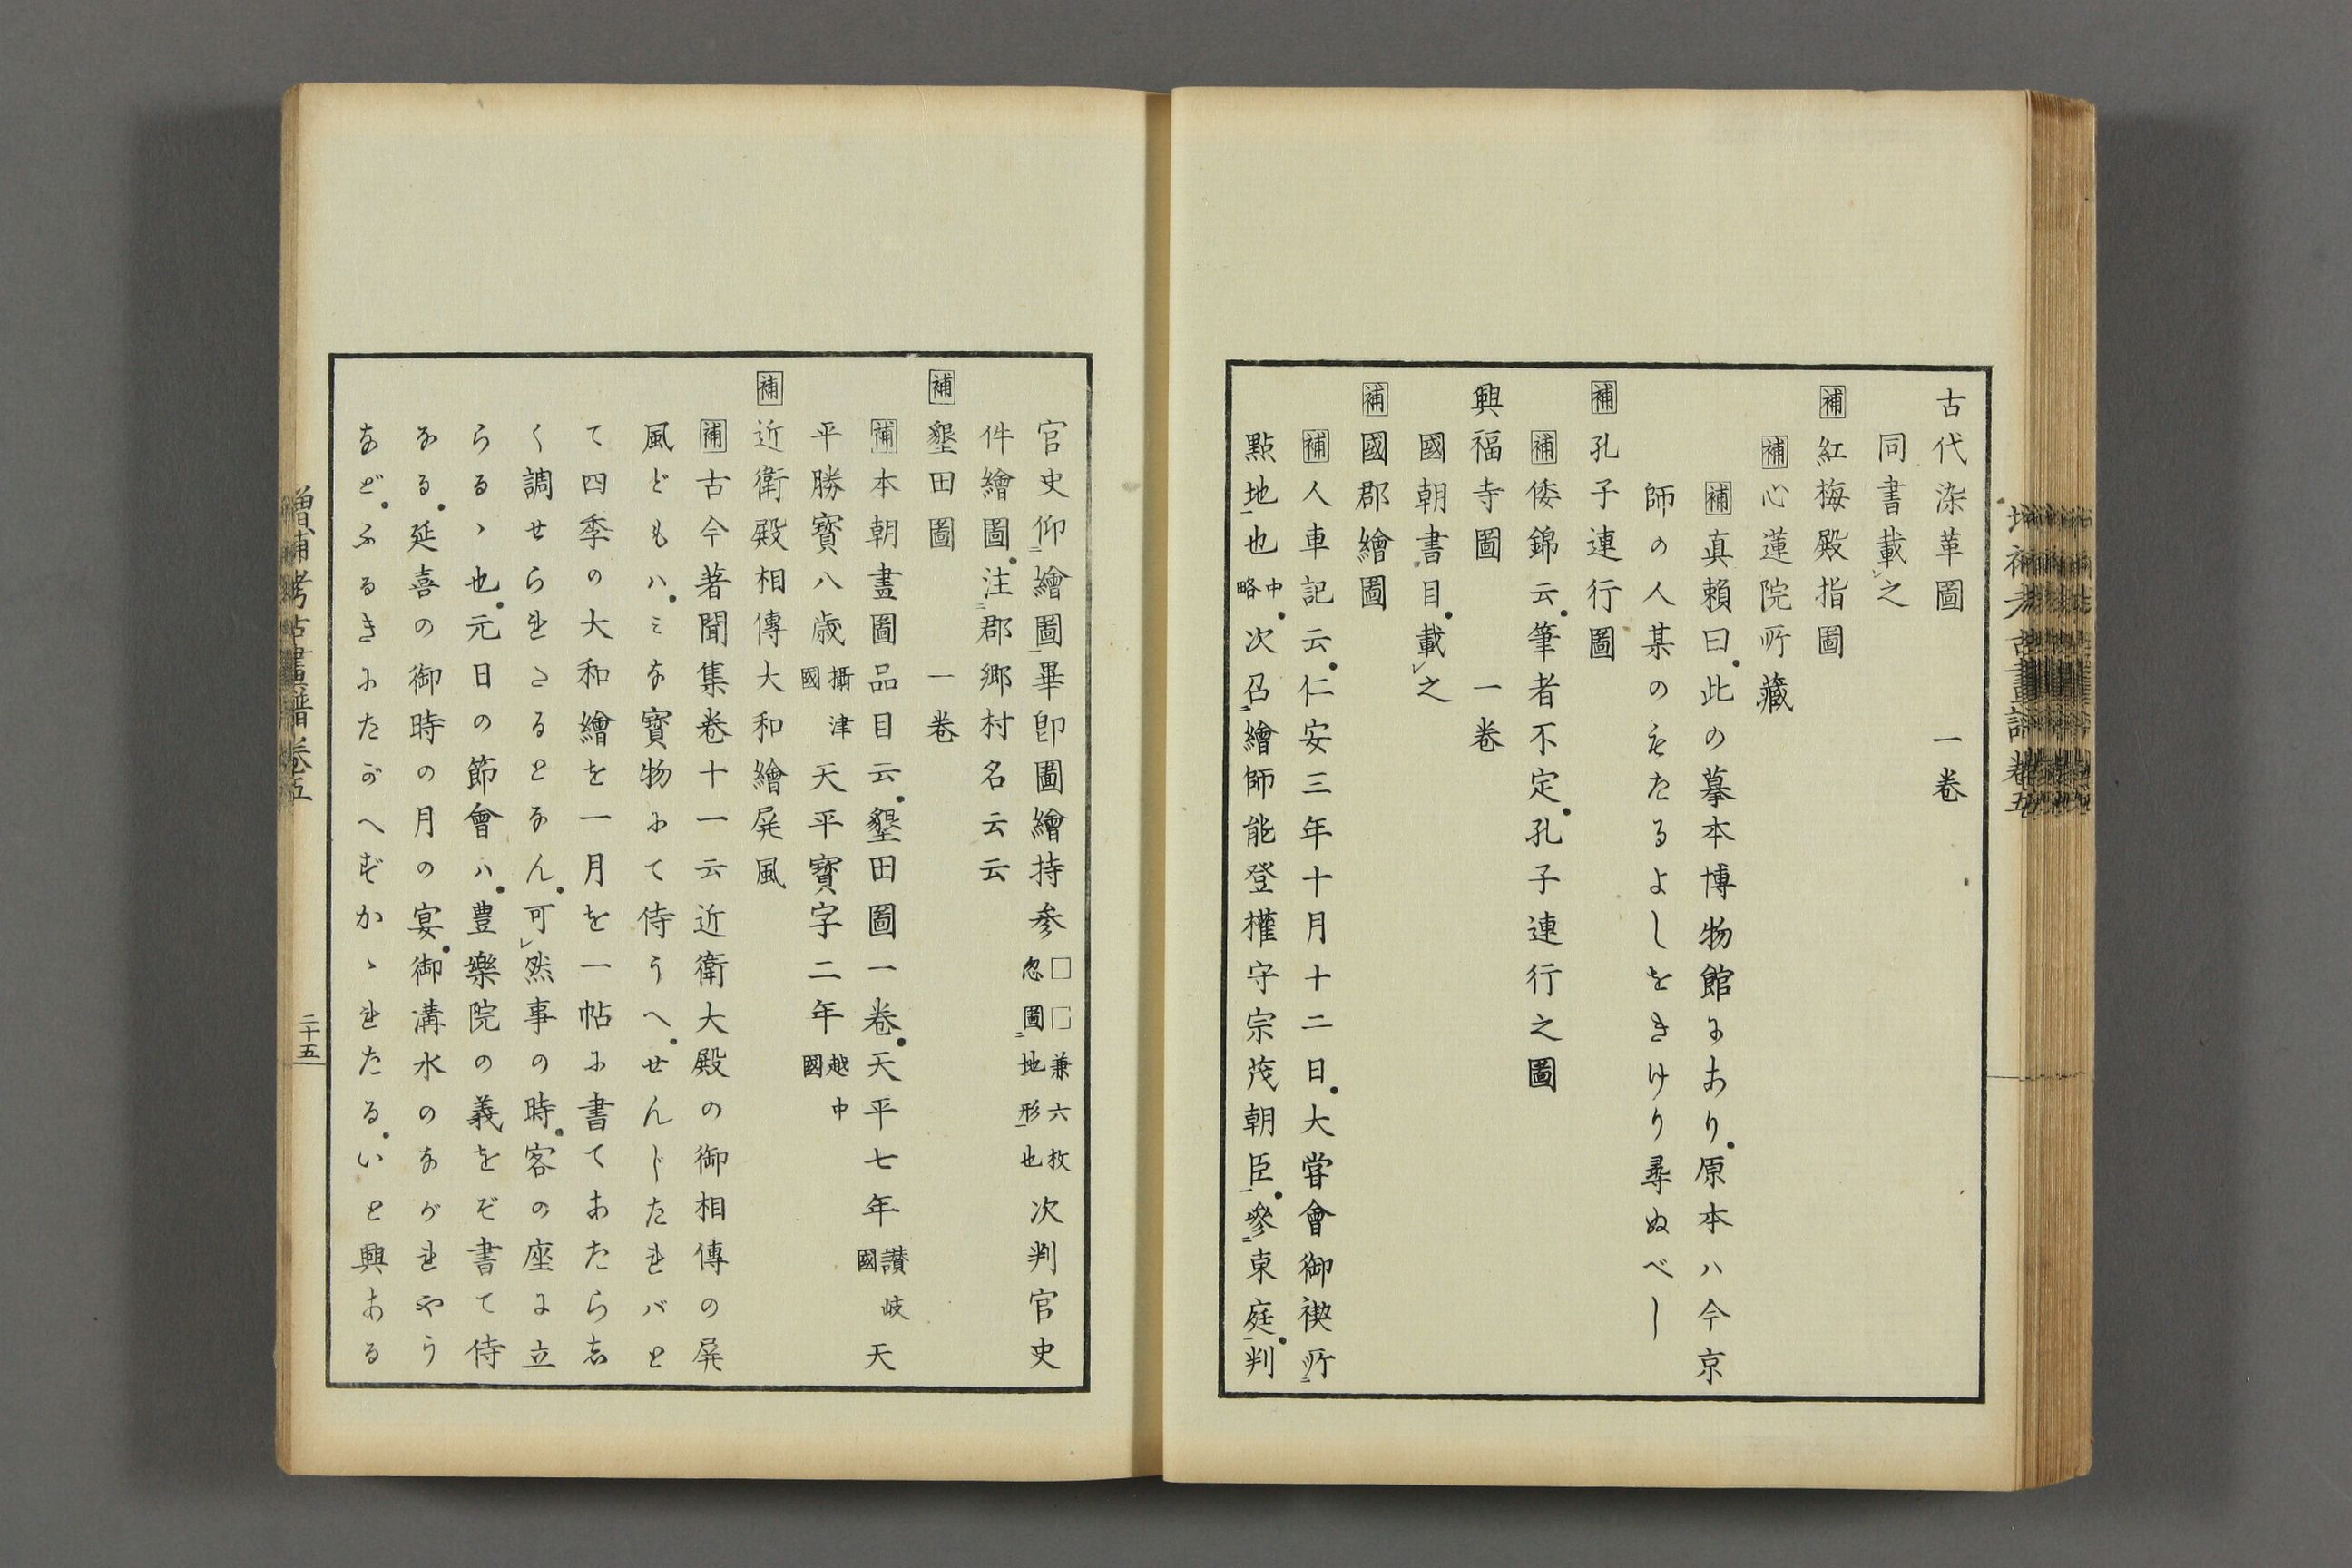 古代染革圖　一卷
同書載之
補紅梅殿指圖
補心蓮院所藏
補真賴曰此の摹本博物館にあり原本ハ今京
師の人某のもたるよしをきけり尋ぬべし
補孔子連行圖
補倭錦云筆者不定孔子連行之圖
興福寺圖　一卷
國朝書目載之
補國郡繪圖
補人車記云仁安三年十月十二日大嘗會御禊所
點地也中略次召繪師能登權守宗茂朝臣參東庭判
官史仰繪圖畢卽圖繪持參□□兼六枚忽圖地形也次判官史
件繪圖注郡鄉村名云云
補墾田圖　一卷
補本朝畫圖品目云墾田圖一卷天平七年讃岐國天
平勝寳八歳攝津國天平寳字二年越中國
補近衛殿相傳大和繪屏風
補古今著聞集卷十一云近衛大殿の御相傳の屏
風どもハミな寳物にて侍うへせんじたれバと
て四季の大和繪を一月を一帖に書てあたらし
く調せられさるとなん可然事の時客の座に立
らるゝ也元日の節會ハ豊樂院の義をぞ書て侍
なる延喜の御時の月の宴御溝水のながれやう
などふるきにたがへずかゝれたるいと興ある
增補考古畫譜卷五
二十五